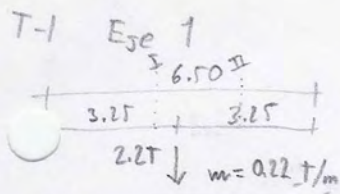 T-1 Eje 1
I 6.50 II
3.25 3.25
2.2T m=0.22 T/m